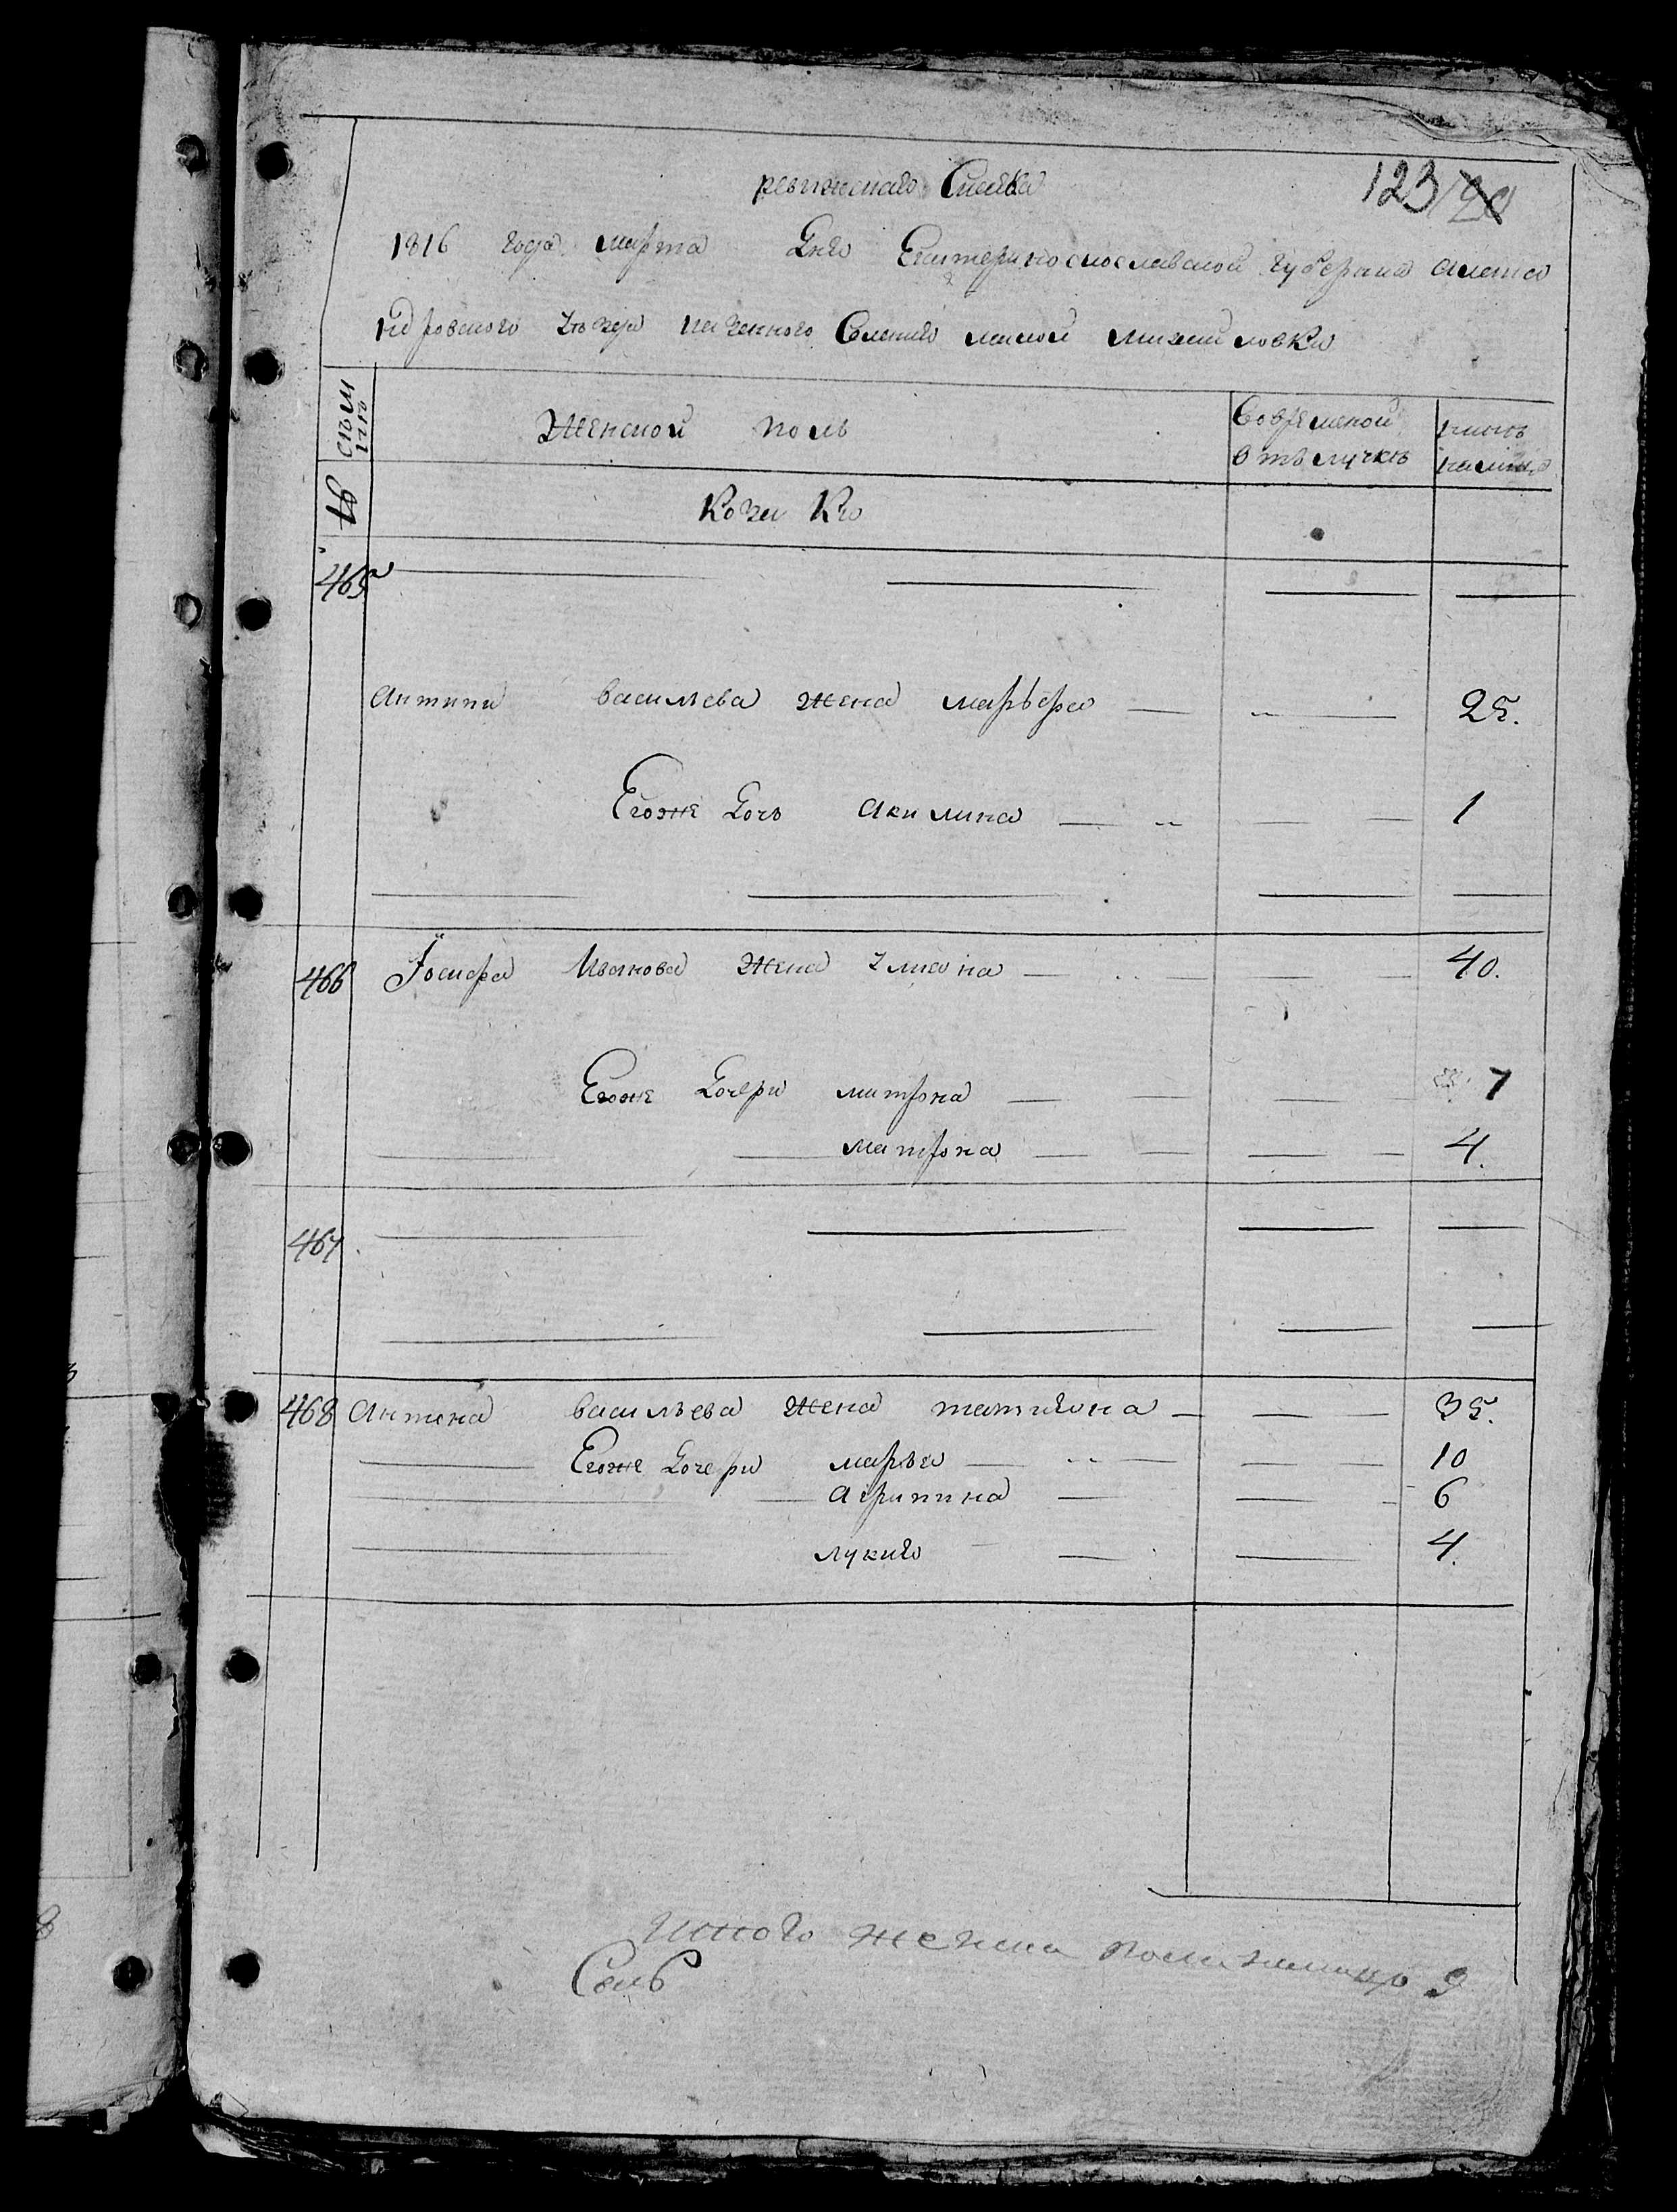 ревижская Скаска
123 20
1816 года марта Дня Екатериносославской губернии Алекса
ндровского уезда казенного Селения малой михайловки
семьи
Женской полъ
вовремянной
отълучкѣ
лѣта
Козаки
465
Антипа васильева жена марьфа 25.
Егоже Дочь акилина 1
466 Іосифа Иванова жена улиана 40.
Егоже Дочери матрона 7
матрона 4.
467.
468 Антона васильева жена татияна 35.
Егоже Дочери марья 10
агрипина 6
лукия 4.
Итого женска пола налицо 9